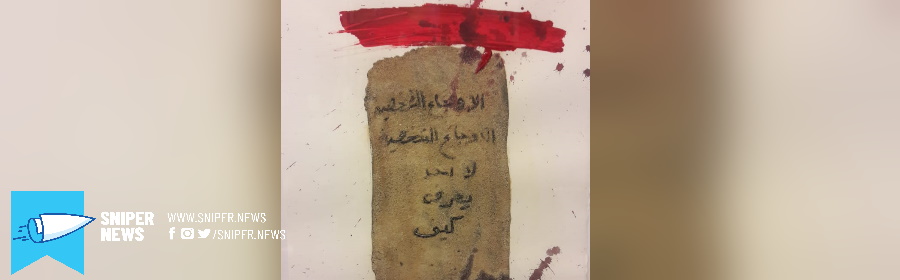 الاوجاع الشخصية
الاوجاع الشخصية
لا احد
يعرف
كيف
SNIPER
NEWS
WWW.SNIPER.NEWS
/SNIPER.NEWS